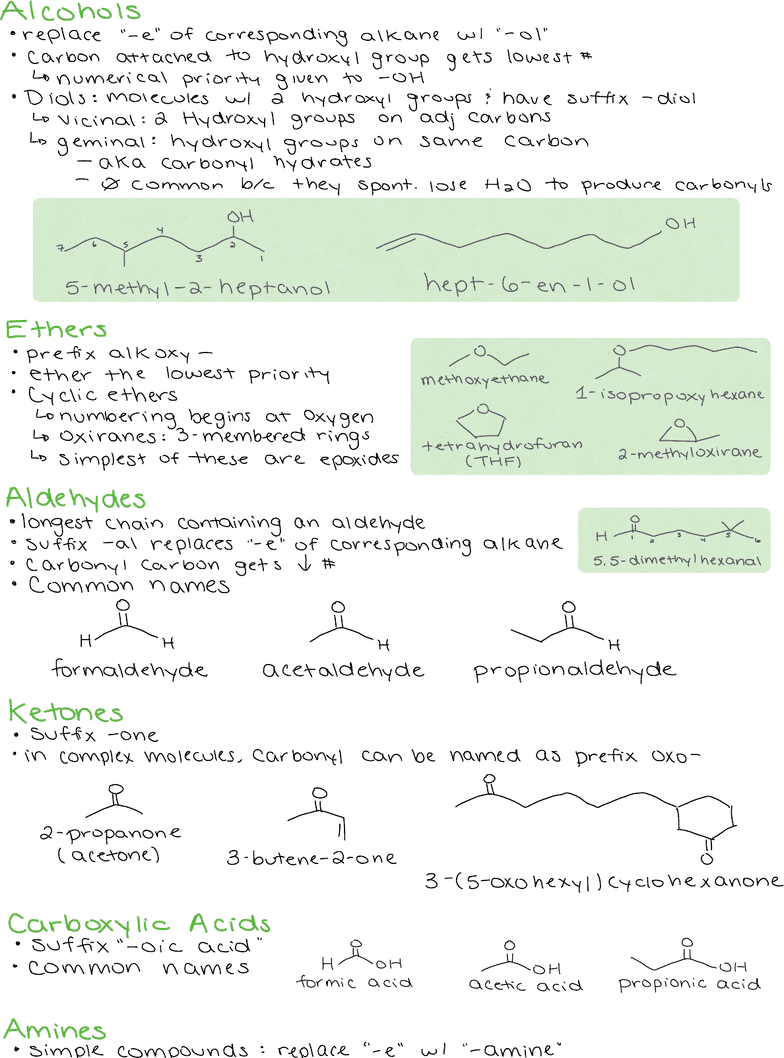 Alcohols
• replace "-e" of corresponding alkane w/ "-ol"
• Carbon attached to hydroxyl group gets lowest #
↳ numerical priority given to -OH
• Diols: molecules w/ 2 hydroxyl groups & have suffix -diol
↳ Vicinal: 2 Hydroxyl groups on adj carbons
↳ geminal: hydroxyl groups on same carbon
- aka carbonyl hydrates
- Ø common b/c they spont. lose H₂O to produce carbonyls
OH
7 6 5 4 3 2 1
5-methyl-2-heptanol
OH
hept-6-en-1-ol
Ethers
• prefix alkoxy-
• ether the lowest priority
• Cyclic ethers
↳ numbering begins at oxygen
↳ Oxiranes: 3-membered rings
↳ Simplest of these are epoxides
O
methoxyethane
O
1-isopropoxyhexane
O
tetrahydrofuran
(THF)
O
2-methyloxirane
Aldehydes
• longest chain containing an aldehyde
• Suffix -al replaces "-e" of corresponding alkane
• Carbonyl carbon gets ↓ #
• Common names
O
H 1 2 3 4 5 6
5,5-dimethylhexanal
O
H H
formaldehyde
O
H
acetaldehyde
O
H
propionaldehyde
Ketones
• Suffix -one
• in complex molecules, carbonyl can be named as prefix oxo-
O
2-propanone
(acetone)
O
3-butene-2-one
O
O
3-(5-oxohexyl)cyclohexanone
Carboxylic Acids
• Suffix "-oic acid"
• Common names
O
H OH
formic acid
O
OH
acetic acid
O
OH
propionic acid
Amines
• Simple compounds: replace "-e" w/ "-amine"